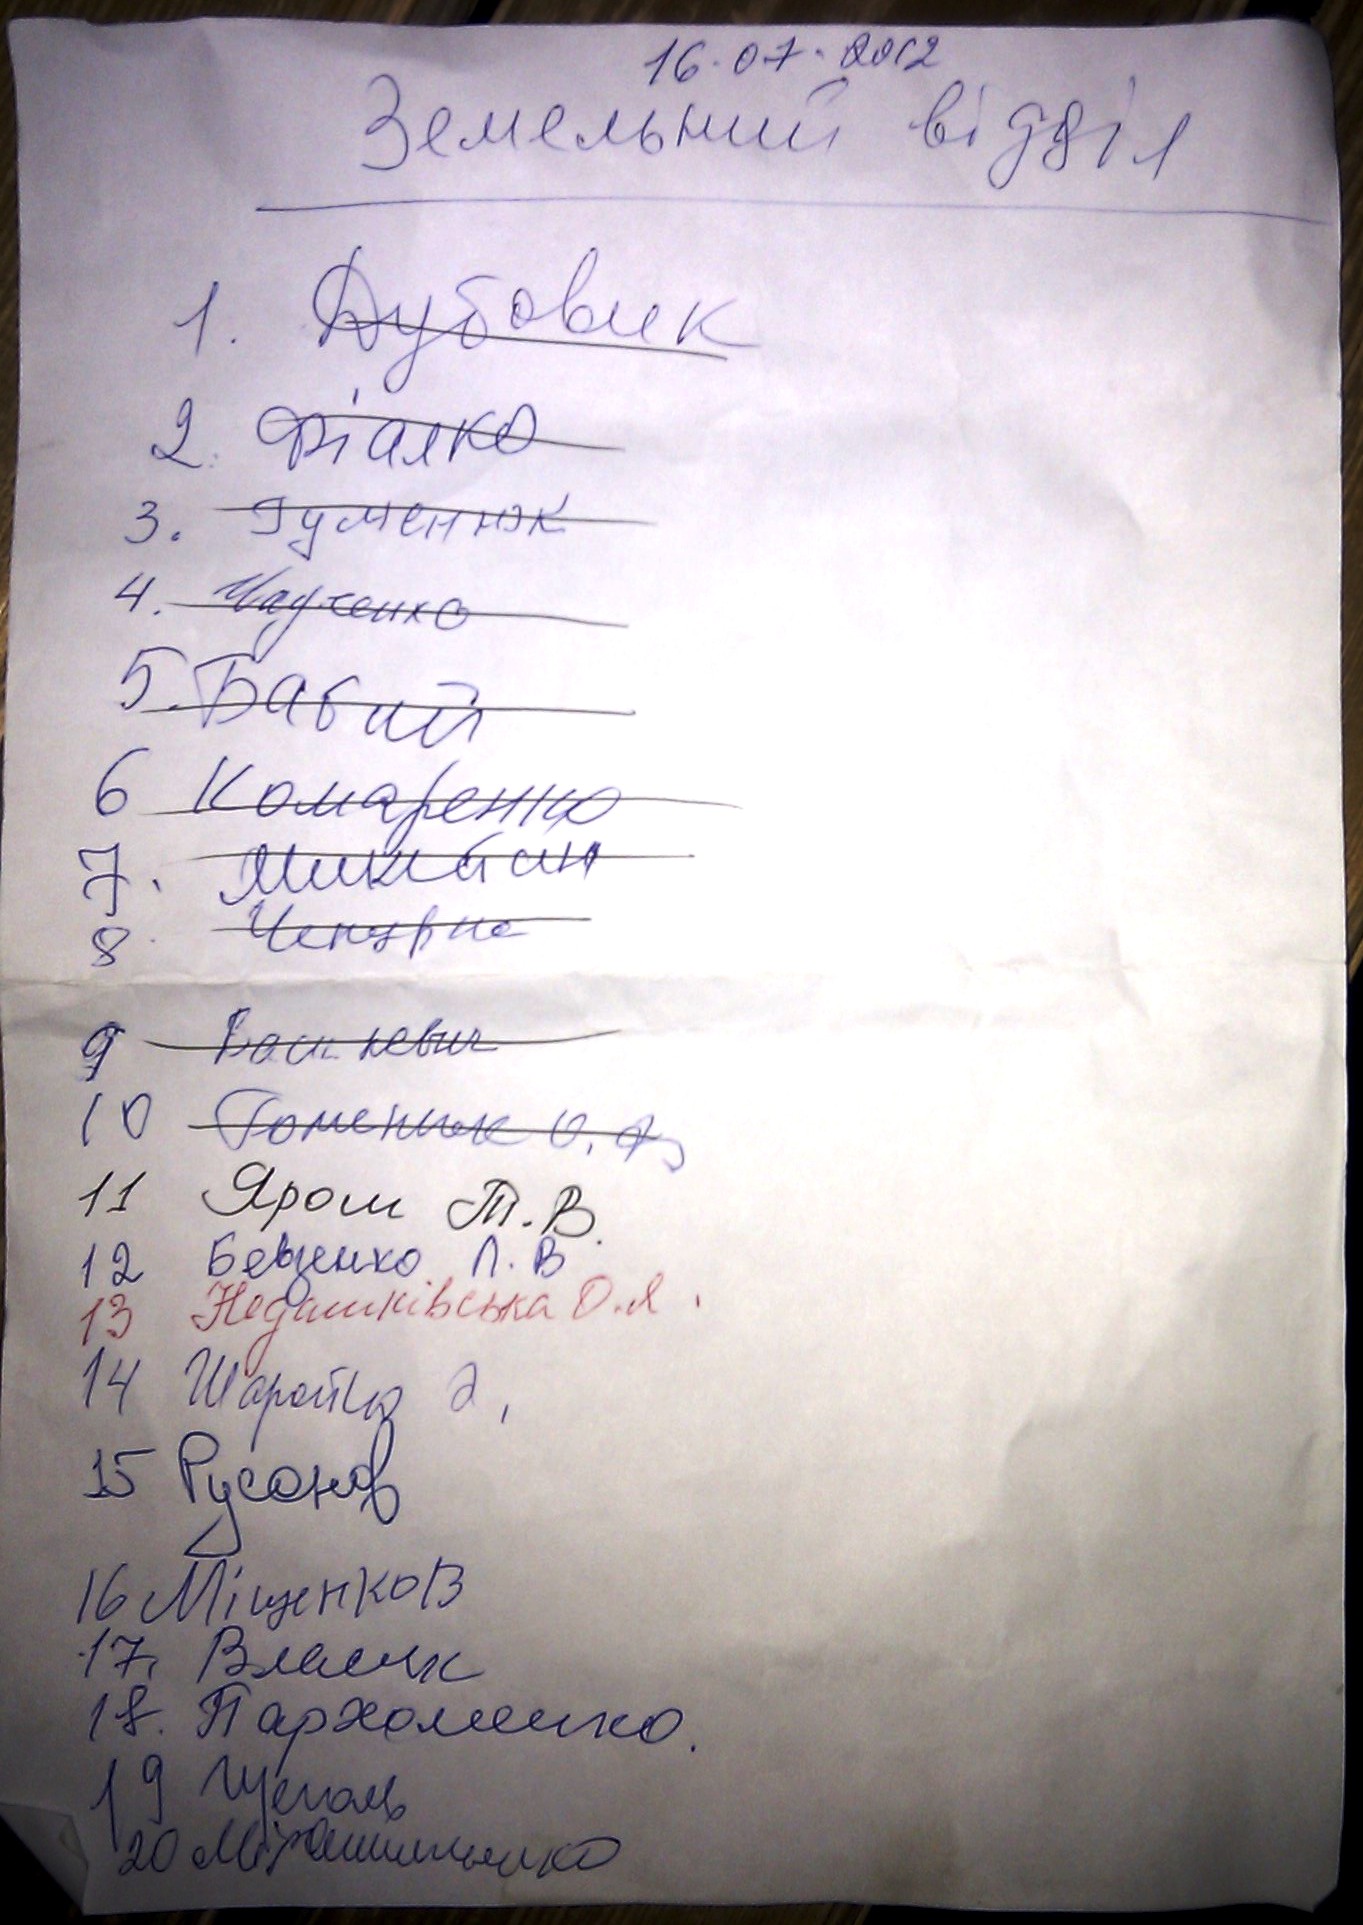 16.07.2012
Земельний відділ
1. Дубовик
2. Фіалко
3. Гуменюк
4.
5. Бабий
6 Комаренко
7. Микитин
8 Чепурна
9 Вашкевич
10 Гоменюк О.
11 Ярош Т.В.
12 Бевзенко Л.В
13 Недашківська О.Я.
14 Шаройко
15 Русанов
16 Міщенко В
17. Власик
18. Пархоменко.
19 Щеголь
20 Мірошниченко